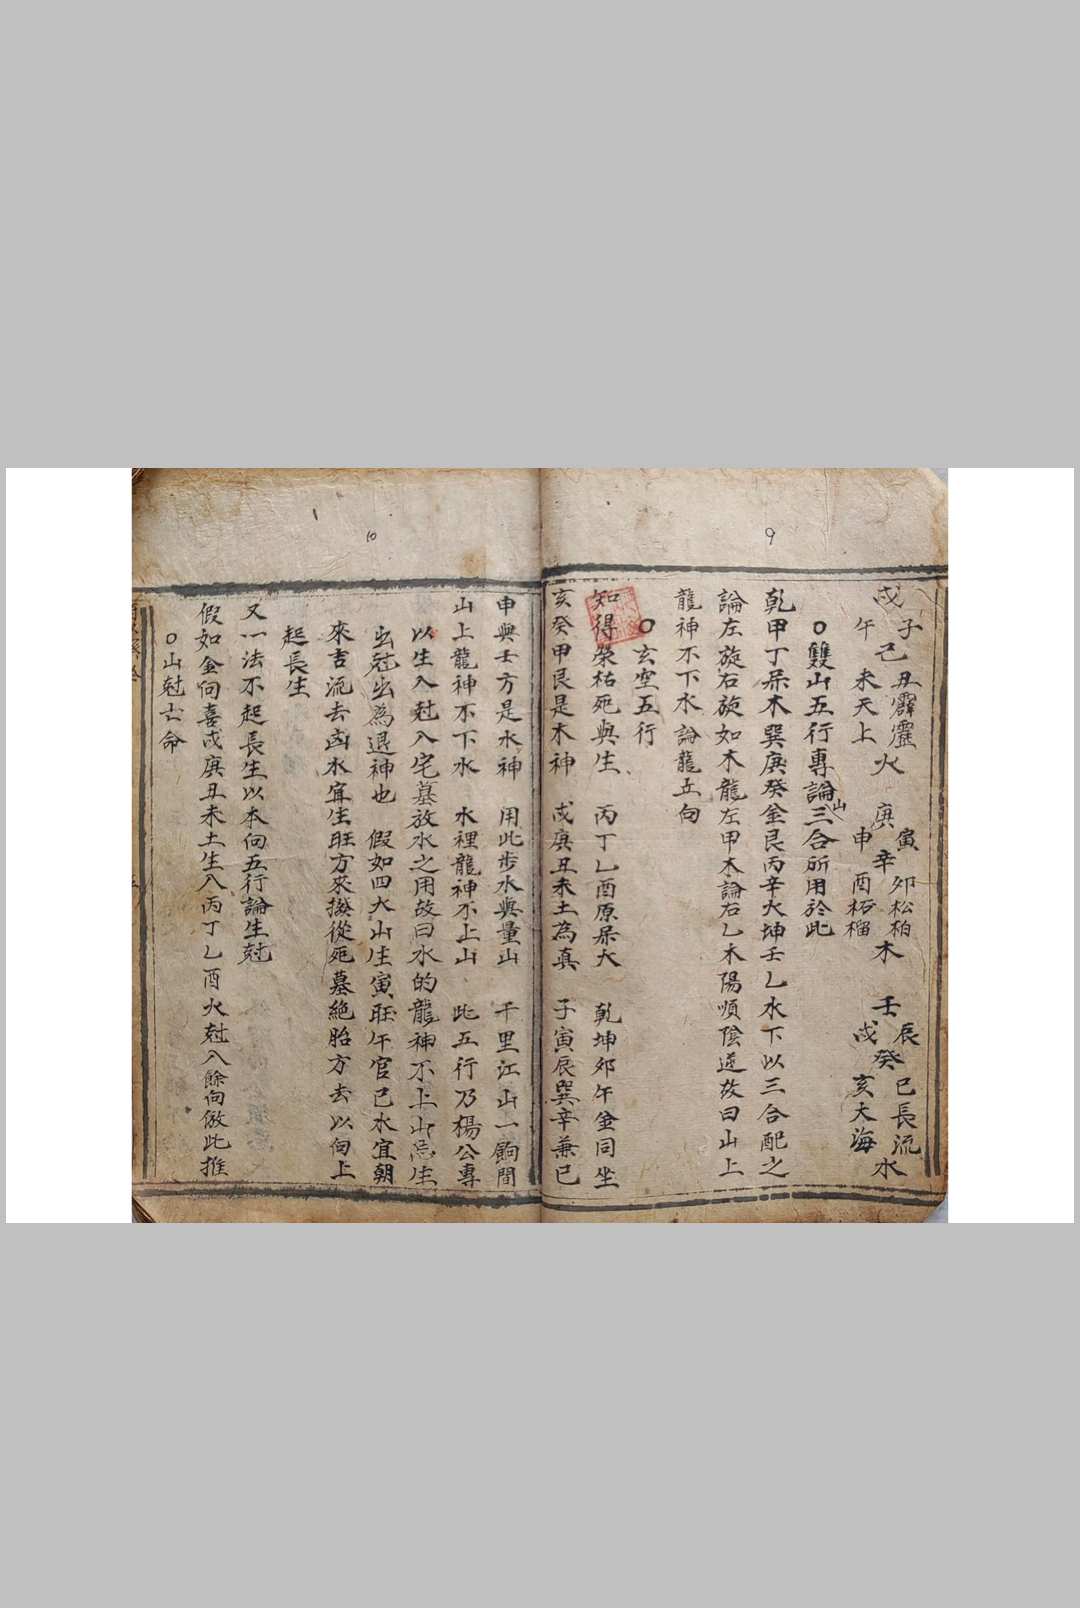 9
戊子 己丑霹靂火 庚寅 辛卯松柏木 壬辰 癸巳長流水
午 未天上 申 酉柘榴 戌 亥大海
○雙山五行專論山三合所用於此
乾甲丁 木巽庚癸金艮丙辛火坤壬乙水下以三合配之
論左旋右旋如木龍左甲木論右乙木陽順陰逆故曰山上
龍神不下水論龍立向
○玄空五行
知得榮祐死與生 丙丁乙酉原 火 乾坤卯午金同坐
亥癸甲艮是木神 戌庚丑未土為真 子寅辰巽辛兼巳
10
申與壬方是水神 用此步水與量山 千里江山一餉間
山上龍神不下水 水裡龍神不上山 此五行乃楊公專
以生入尅入宅墓放水之用故曰水的龍神不上山忌生
出尅出為退神也 假如四大山生寅旺午官巳水宜朝
來吉流去凶水宜生旺方來撥從死墓絕胎方去以向上
起長生
又一法不起長生以本向五行論生尅
假如金向喜戌庚丑未土生入丙丁乙酉火尅入餘向倣此推
○山尅亡命